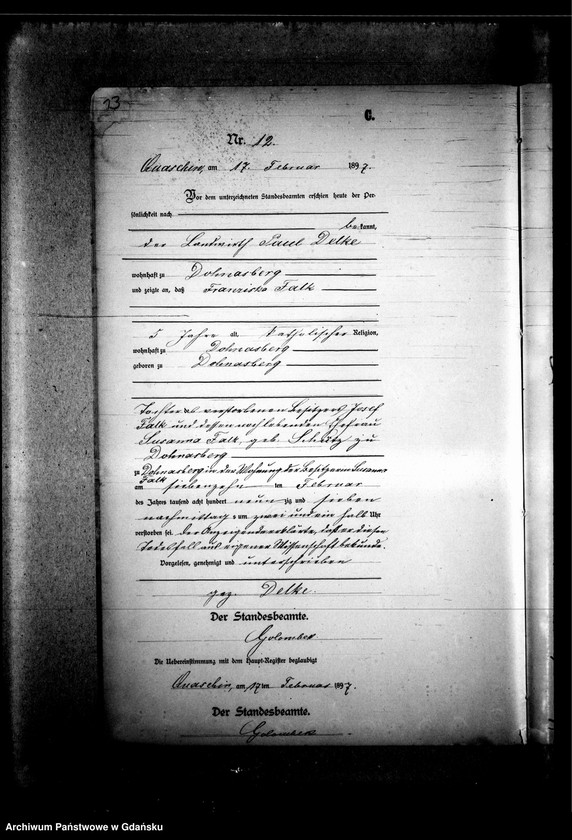 13
C.
Nr. 12.
Quaschin, am 17. Februar 1897.
Vor dem unterzeichneten Standesbeamten erschien heute der Per-
sönlichkeit nach
bekannt,
der Landwirth Paul Delke
wohnhaft zu Dohnasberg
und zeigte an, daß Franziska Falk
5 Jahre alt, katholischer Religion,
wohnhaft zu Dohnasberg
geboren zu Dohnasberg
Tochter des verstorbenen Besitzers Josef
Falk und dessen noch lebenden Ehefrau
Susanna Falk, geb. Schütz zu
Dohnasberg
zu Dohnasberg in der Wohnung der Besitzerin Susanna
Falk
am siebenzehnten Februar
des Jahres tausend acht hundert neunzig und sieben
nachmittags um zwei und ein halb Uhr
verstorben sei. Der Anzeigende erklärte, daß er diesen
Todesfall aus eigener Wissenschaft bekunde.
Vorgelesen, genehmigt und unterschrieben
gez. Delke.
Der Standesbeamte.
Golombek
Die Uebereinstimmung mit dem Haupt-Register beglaubigt
Quaschin, am 17ten Februar 1897.
Der Standesbeamte.
Golombek
Archiwum Państwowe w Gdańsku